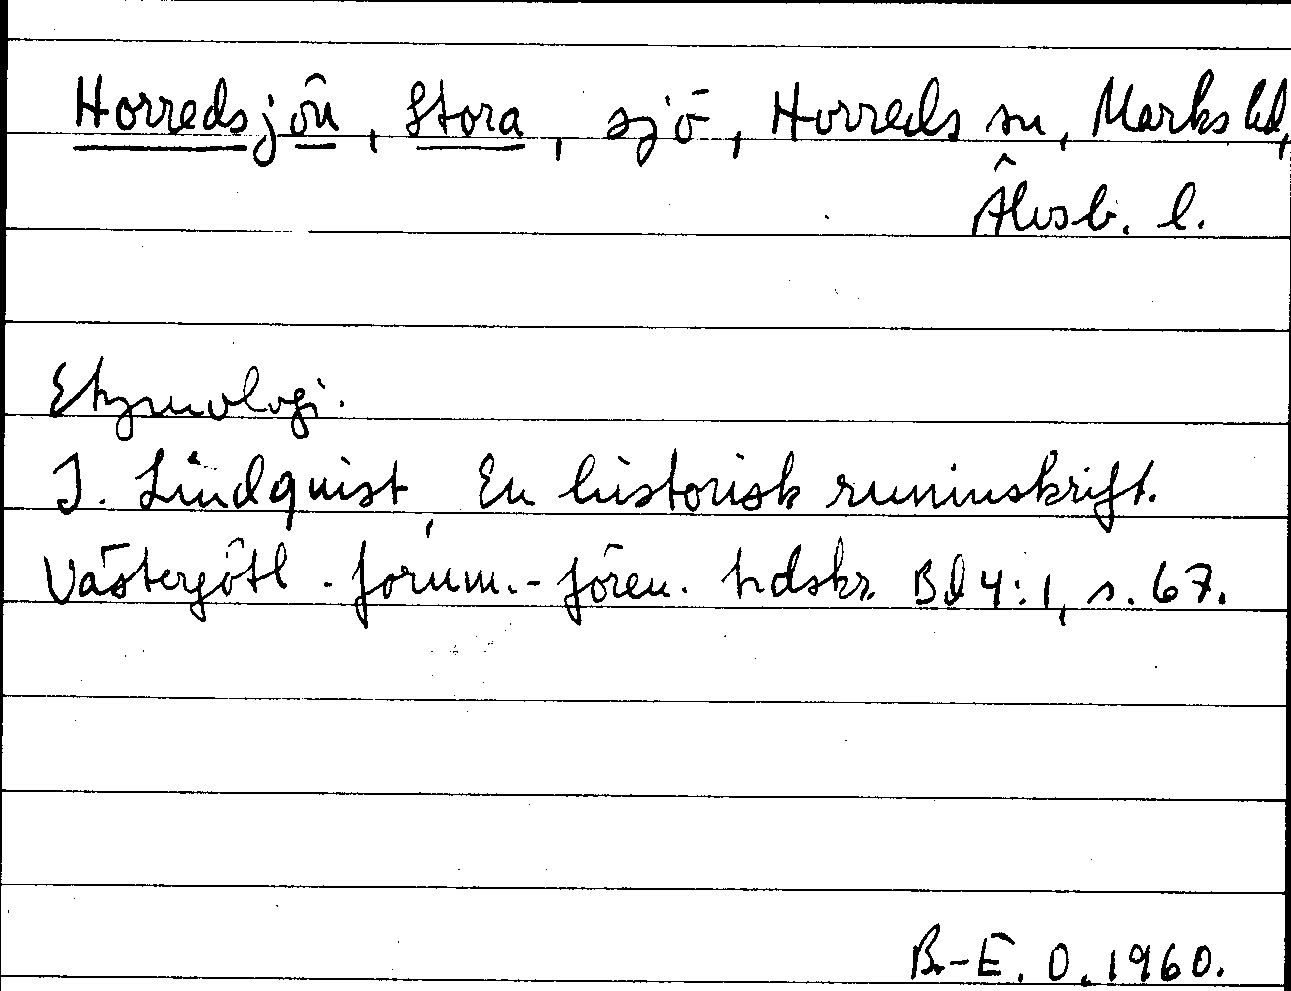 Horredsjön, Stora, sjö, Horreds sn, Marks hd,
Älvsb. l.
Etymologi.
I. Lindquist, En historisk runinskrift.
Västergötl. fornm.-fören. tidskr. Bd 4:1, s. 67.
B.-E. O. 1960.